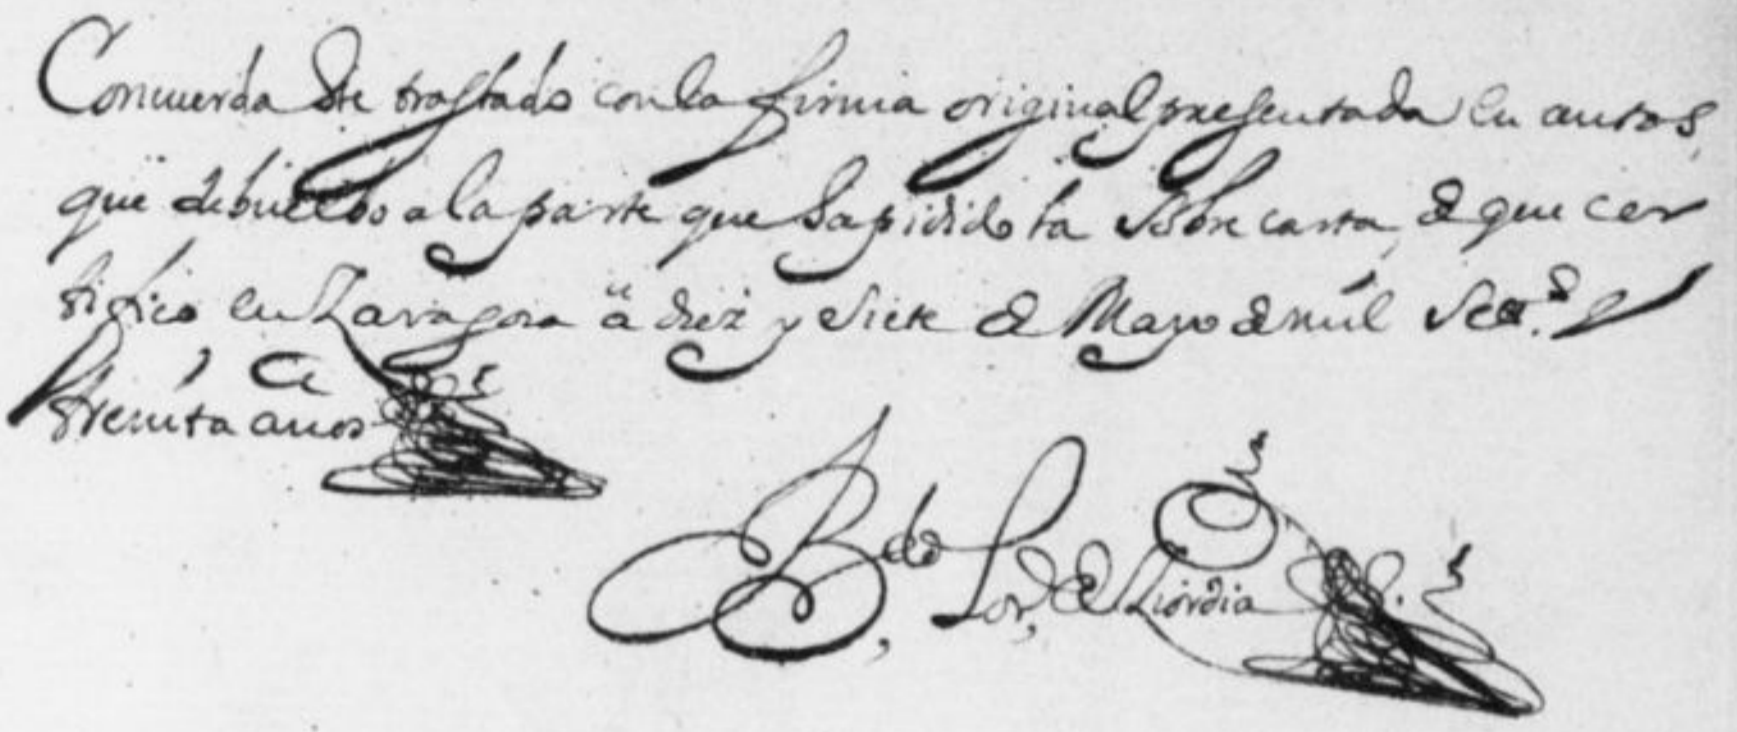 Concuerda este traslado con la firma original presentada en autos,
que debuelbo a la parte que ha pidido la Sobre carta, de que cer
tifico en Zaragoza à diez y siete de Mayo de mil Setos. y
treinta años
B.do Lor, de Liordia